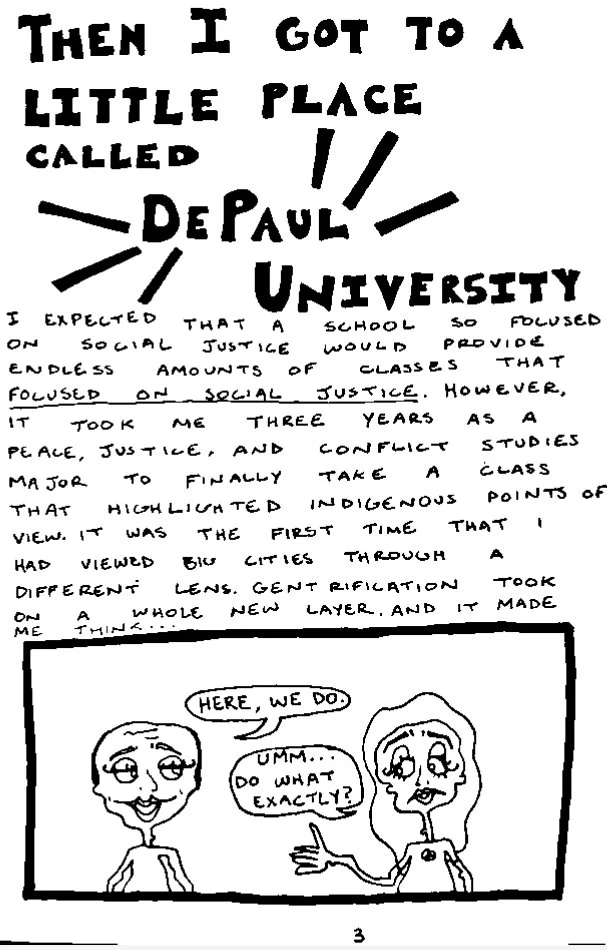 THEN I GOT TO A
LITTLE PLACE
CALLED
DEPAUL
UNIVERSITY
I EXPECTED THAT A SCHOOL SO FOCUSED
ON SOCIAL JUSTICE WOULD PROVIDE
ENDLESS AMOUNTS OF CLASSES THAT
FOCUSED ON SOCIAL JUSTICE. HOWEVER,
IT TOOK ME THREE YEARS AS A
PEACE, JUSTICE, AND CONFLICT STUDIES
MAJOR TO FINALLY TAKE A CLASS
THAT HIGHLIGHTED INDIGENOUS POINTS OF
VIEW. IT WAS THE FIRST TIME THAT I
HAD VIEWED BIG CITIES THROUGH A
DIFFERENT LENS. GENTRIFICATION TOOK
ON A WHOLE NEW LAYER. AND IT MADE
ME THINK...
HERE, WE DO.
UMM...
DO WHAT
EXACTLY?
3